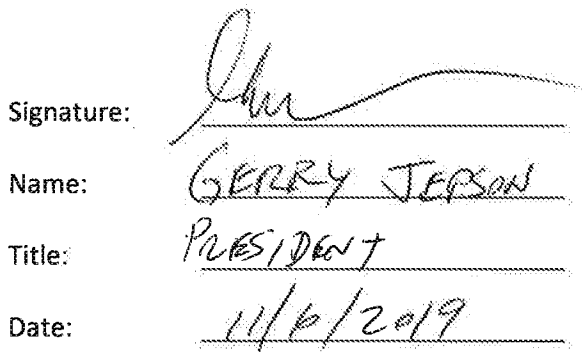 Signature:
Name: GERRY JEPSON
Title: PRESIDENT
Date: 11/6/2019